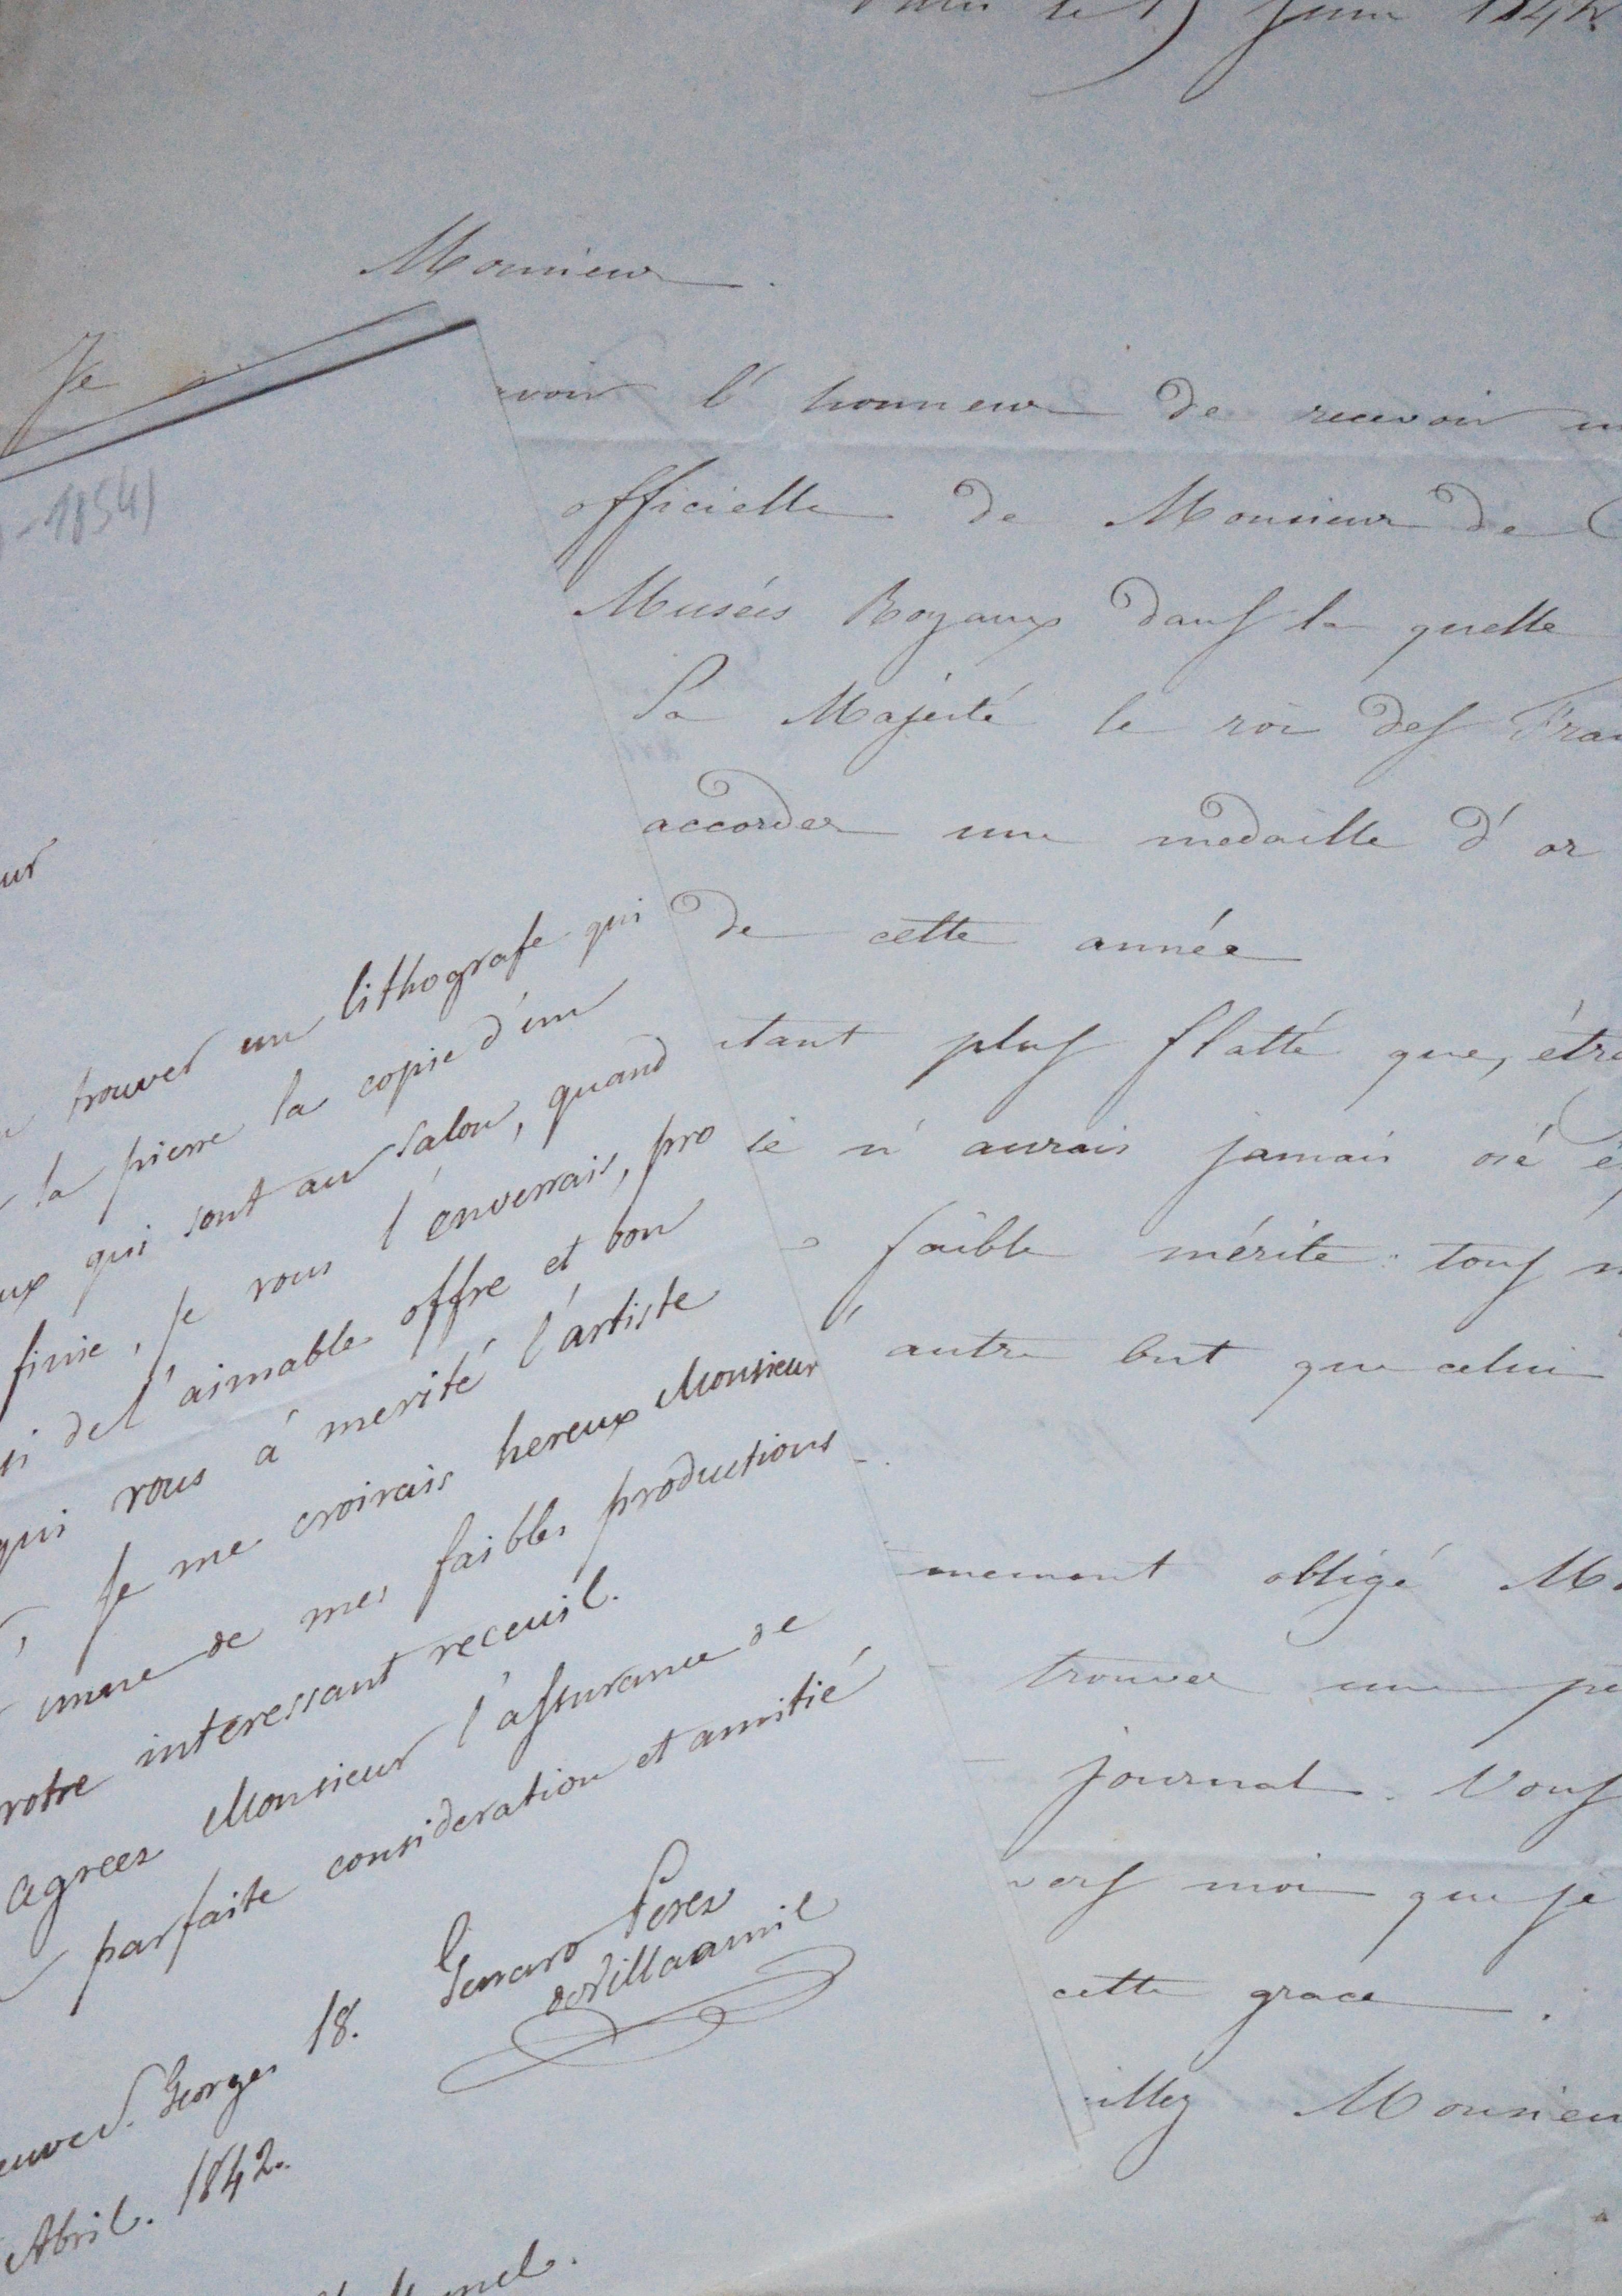 juin
Monsieur.
Je
l'honneur de recevoir
officielle de Monsieur de
Musées Royaux dans la quelle
Sa Majesté le roi des
accorder une medaille d'or
de cette année
plus flatté que,
je n'aurais jamais osé
faible mérite: tous
autre but que celui
obligé
trouver une
journal. Vous
vers moi que je
cette grace.
Monsieur
-1854)
trouver un lithografe qui
la pierre la copie d'un
qui sont au salon, quand
finie, Je vous l'enverrais, pro
de l'aimable offre et bon
qui vous á merité l'artiste
, Je me croirais hereux Monsieur
unne de mes faibles productions
votre interessant receuil.
Agreez Monsieur l'assurance de
parfaite consideration et amitié
Genaro Perez
de Villaamil
S. Georges 18.
Abril. 1842.